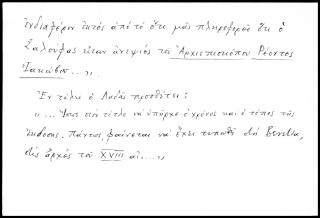 ἐνδιαφέρον ἐκτὸς ἀπὸ τὸ ὅτι μᾶς πληροφορεῖ ὅτι ὁ
Σαλούφας εἶταν ἀνεψιὸς τοῦ Ἀρχιεπισκόπου Ρέοντος
Ἰακώβου ...,,.
Ἐν τέλει ὁ Λαδᾶς προσθέτει:
,,... Ἴσως στὸν τίτλο νὰ ὑπῆρχε ὁ χρόνος καὶ ὁ τόπος τῆς
ἐκδοσης. Πάντως φαίνεται νὰ ἔχει τυπωθῆ στὴ Βενετία,
στὶς ἀρχὲς τοῦ XVIII αἰ....,,